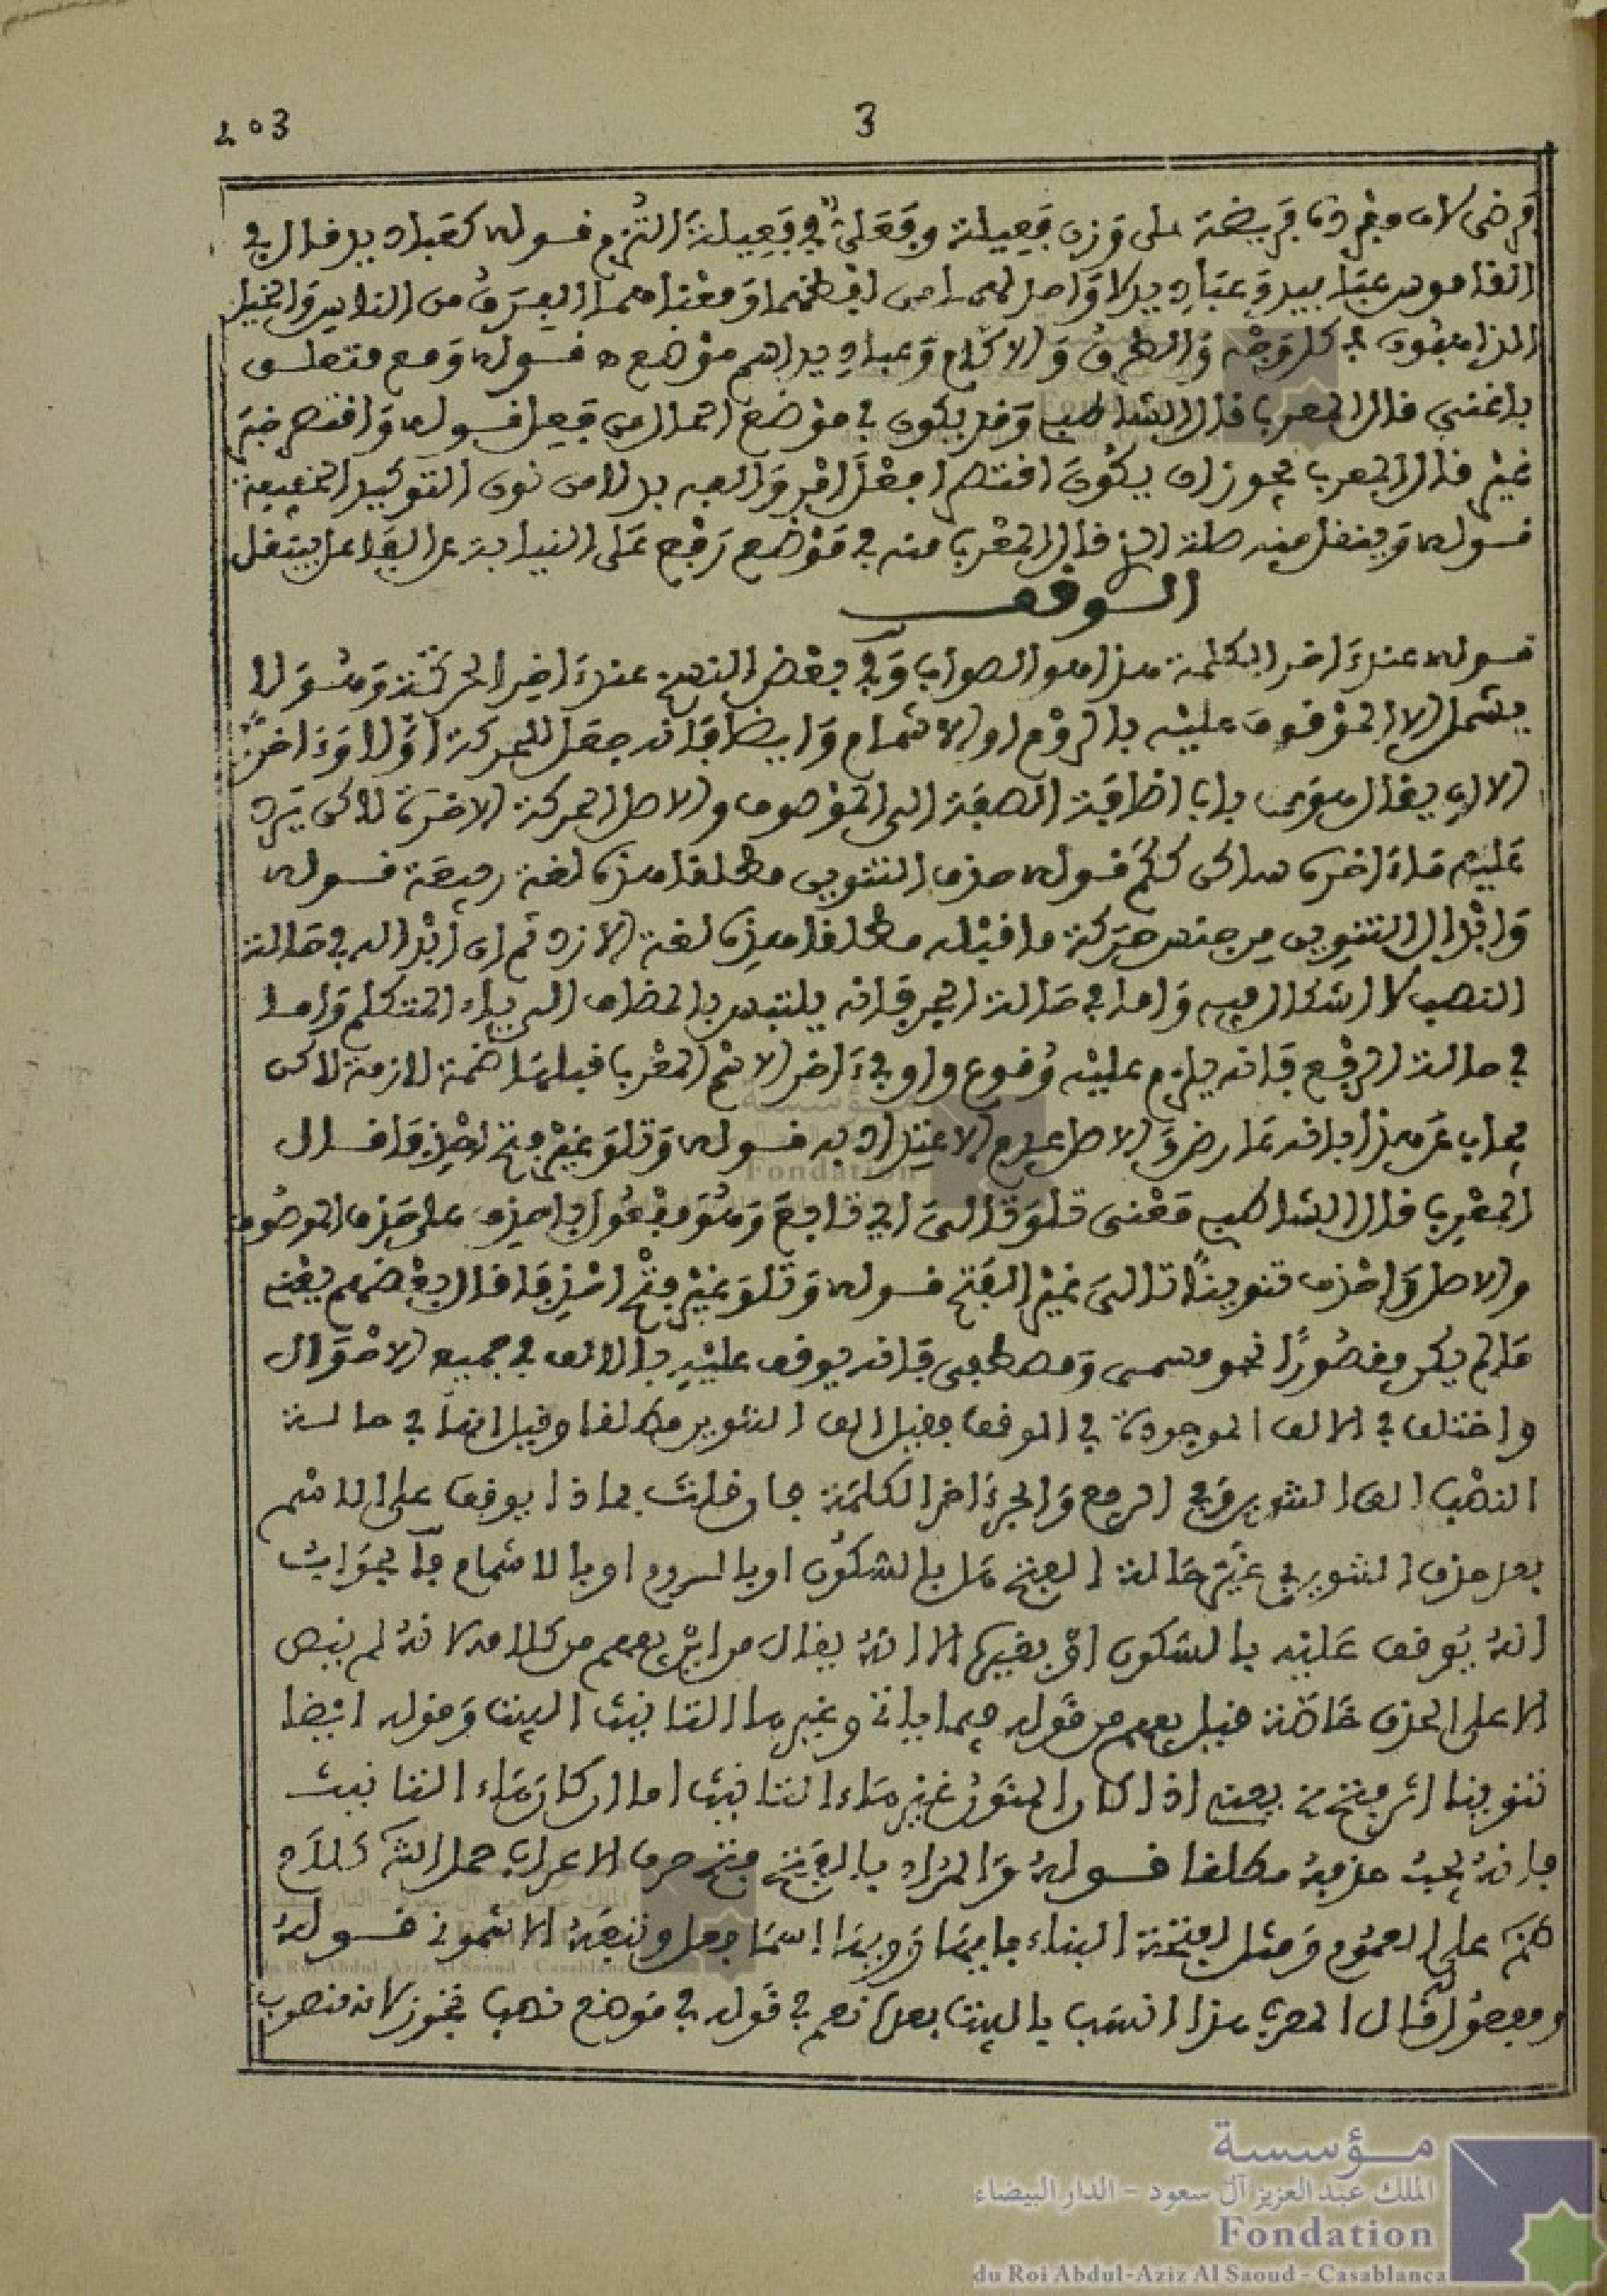 3
203
فرضي لان مفرده فريضة على وزن فعيلة وفعلي في فعيلة التزم قوله كعباديد قال في
القاموس عبابيد وعباديد بلا واحد لهما من لفظهما ومعناهما الفرق من الناس والخيل
الذاهبون في كل وجه والطرق والاكام وعباديد اسم موضع ه قوله ومع متعلق
باغنى قال المعرب قال الشاطبي وقد يكون في موضع الحال من فعل قوله وافتحن
غير قال المعرب يجوز ان يكون افتحا فعل امر والفه بدلا من نون التوكيد الخفيفة
قوله وينقل منه صلة الخ قال المعرب منه في موضع رفع على النيابة عن الفاعل بينقل
الوقف
قوله عند اخر الكلمة هذا هو الصواب وفي بعض النسخ عند اخر الحركة وهو لا
يشمل الا الموقوف عليه بالروم او الاشمام وايضا فانه جعل للحركة اولا وءاخرا
الا ان يقال هو من باب اضافة الصفة الى الموصوف والاصل الحركة الاخرة لاكن يرد
عليه قوله حذف التنوين مطلقا هذه لغة ربيعة قوله
وابدال التنوين من جنس حركة ما قبله مطلقا هذه لغة الازد ثم ان ابداله في حالة
النصب لا اشكال فيه واما في حالة الجر فانه يلتبس بالمضاف الى ياء المتكلم واما
في حالة الرفع فانه يلزم عليه وقوع واو في ءاخر الاسم المعرب قبلها ضمة لازمة لاكن
يجاب عن هذا بانه عارض والاصل عدم الاعتداد به قوله وتلو غير فتح احذفا قال
المعرب قال الشاطبي معنى تلو تالي اي تابع وهو مفعول باحذف على حذف الموصوف
والاصل واحذف تنوينا تالي غير الفتح قوله وتلو غير فتح احذفا قال بعضهم يعني
ما لم يكن مقصورا نحو مسمى ومصطفى فانه يوقف عليه بالالف في جميع الاحوال
واختلف في الالف الموجودة في الوقف فقيل الف التنوين مطلقا وقيل انها في حالة
النصب الف التنوين وفي الرفع والجر ءاخر الكلمة فان قلت بماذا يوقف على الاسم
بعد حذف التنوين في غير حالة الفتح هل بالسكون او بالروم او بالاشمام فالجواب
انه يوقف عليه بالسكون او بقيها الا انه يقال من اين يفهم من كلامه لانه لم ينص
الا على الحذف خاصة قيل يفهم من قوله فيما ياتي وغير ها التانيث البيت وقوله ايضا
تنوينا اثر فتح يعني اذا كان المنون غير هاء التانيث اما ان كان هاء التانيث
فانه يجب حذفه مطلقا قوله والمراد بالفتح فتح حرف الاعراب حمل الشـ كلام
على العموم ومثل لفتحة البناء بايها وويها اسما فعل وتبعه الاشموني قوله
ومفعول قال المعرب هذا انسب بالبيت بعد نعم في قوله في موضع نصب تجوز لانه منصوب
مؤسسة
الملك عبد العزيز آل سعود - الدار البيضاء
Fondation
du Roi Abdul-Aziz Al Saoud - Casablanca